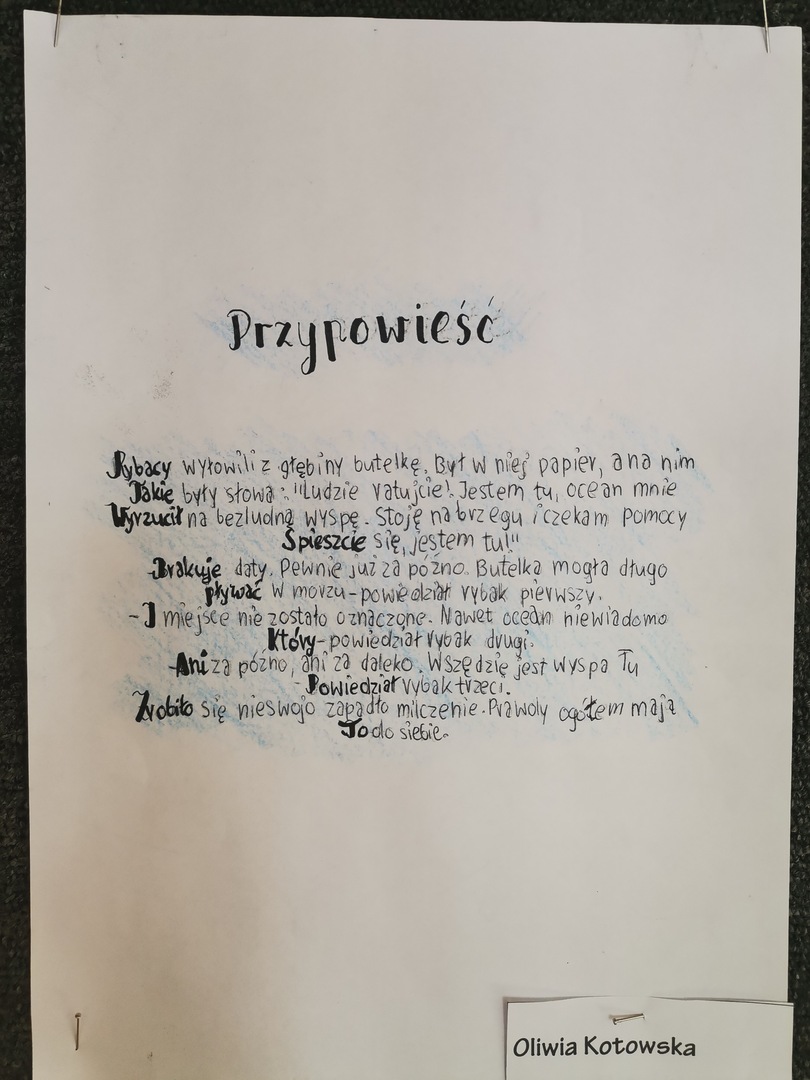 Przypowieść
Rybacy wyłowili z głębiny butelkę. Był w niej papier, a na nim
Takie były słowa: "Ludzie ratujcie! Jestem tu, ocean mnie
Wyrzucił na bezludną wyspę. Stoję na brzegu i czekam pomocy
Śpieszcie się, jestem tu!"
-Brakuje daty. Pewnie już za późno. Butelka mogła długo
pływać w morzu - powiedział rybak pierwszy.
- I miejsce nie zostało oznaczone. Nawet ocean niewiadomo
Który - powiedział rybak drugi.
-Ani za późno, ani za daleko. Wszędzie jest wyspa Tu
- Powiedział rybak trzeci.
Zrobiło się nieswojo zapadło milczenie. Prawoly ogółem mają
To do siebie.
Oliwia Kotowska